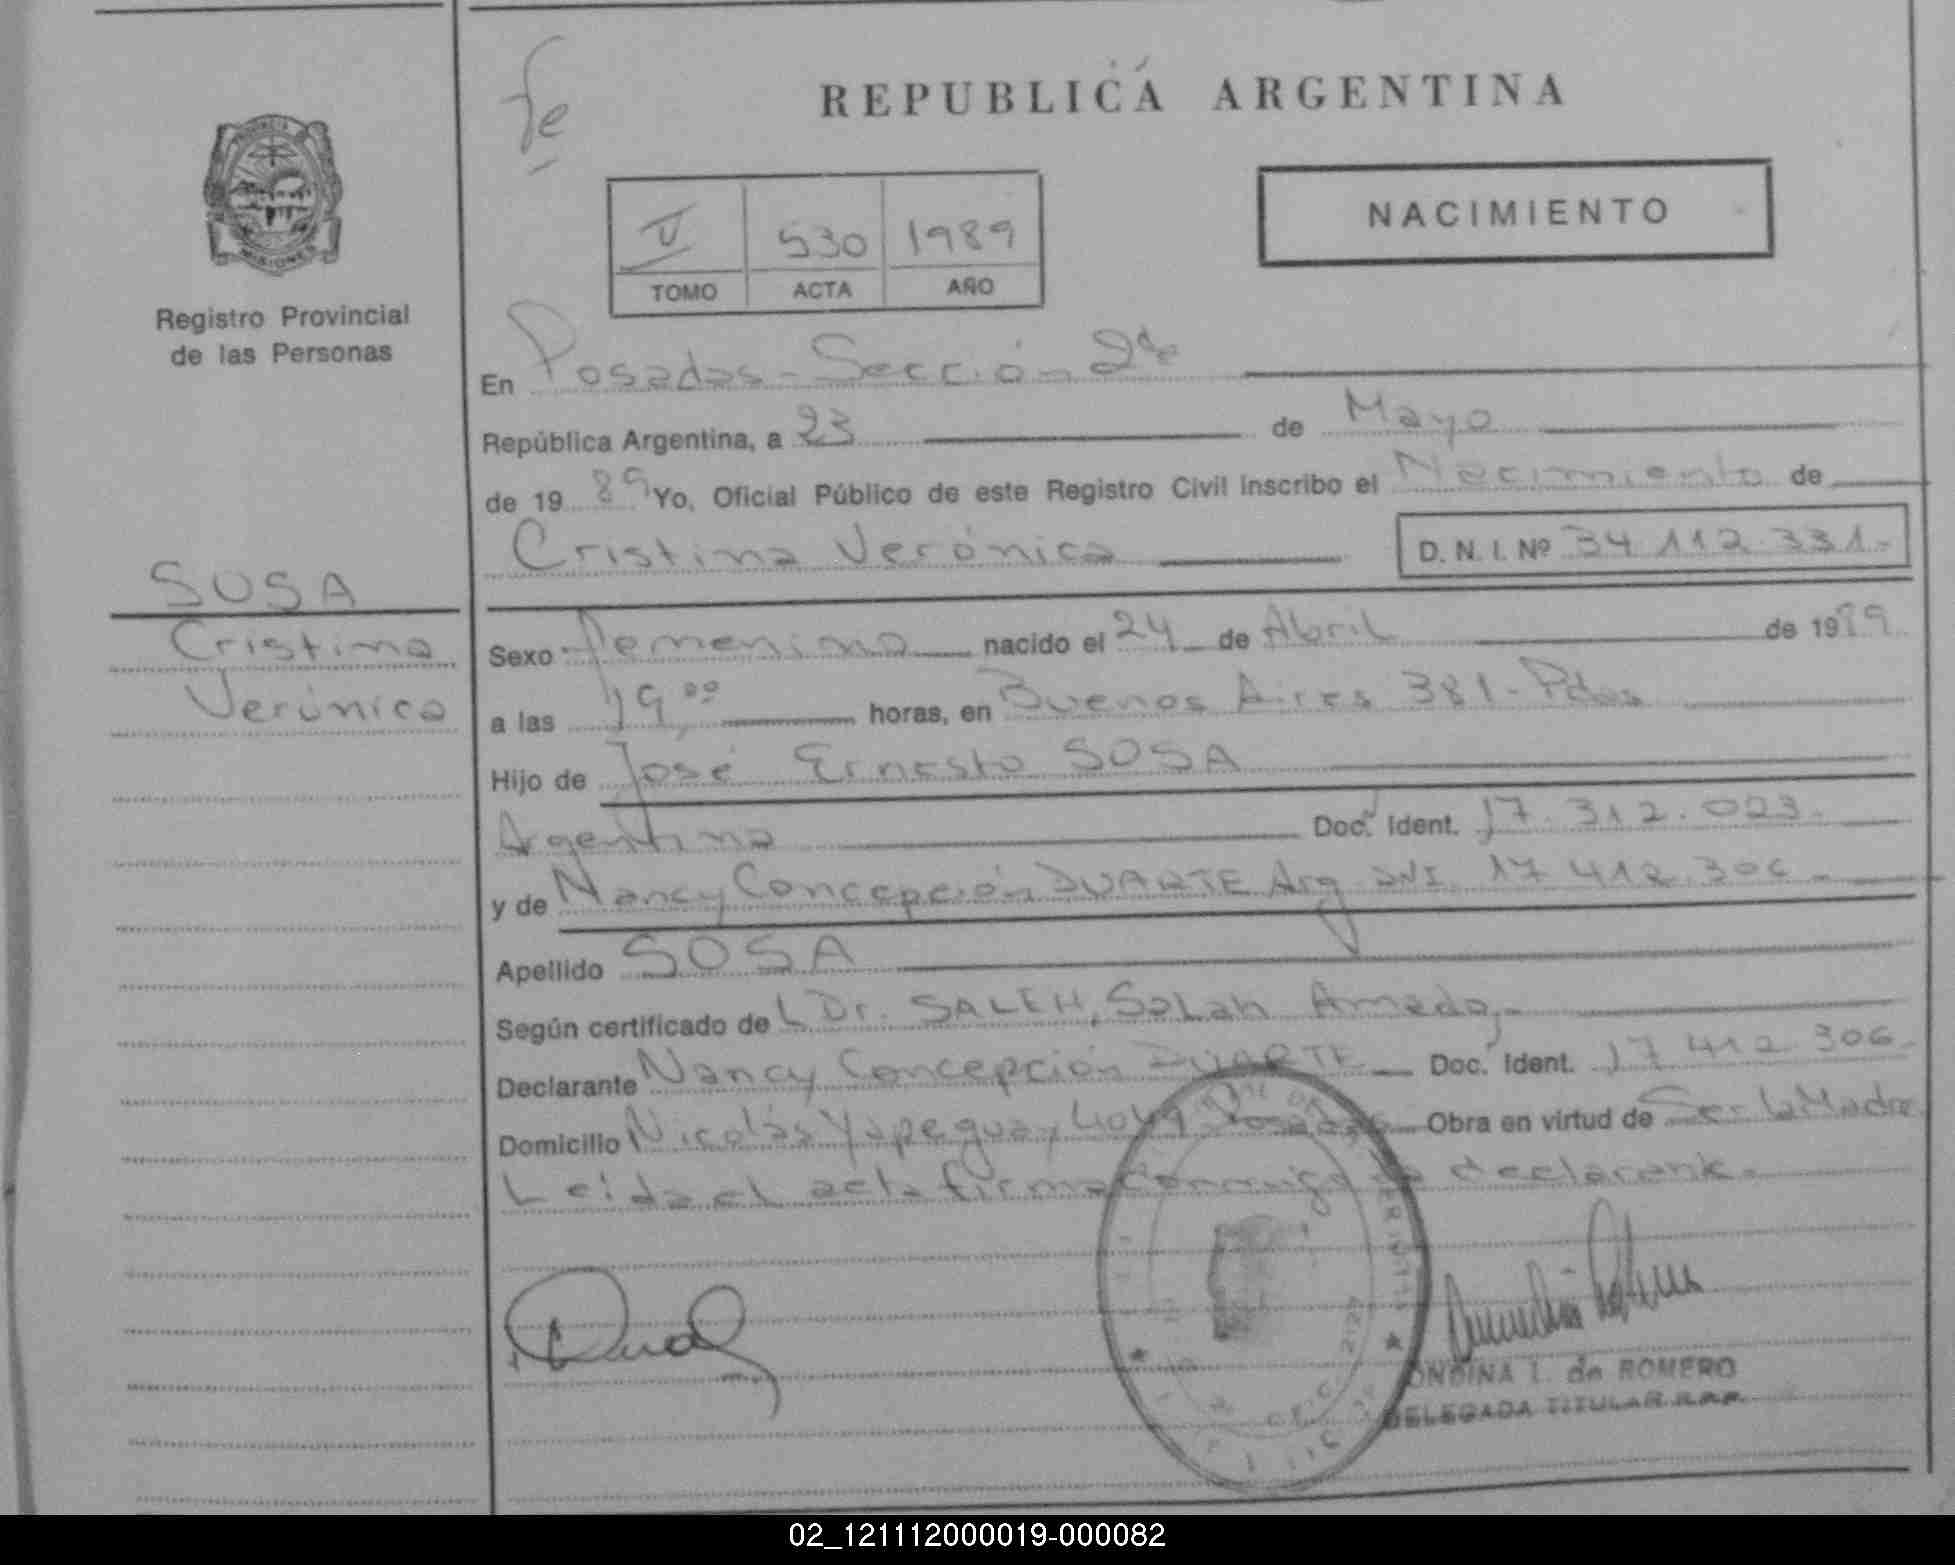 fe
REPUBLICA ARGENTINA
PROVINCIA
MISIONES
Registro Provincial
de las Personas
V 530 1989
TOMO ACTA AÑO
NACIMIENTO
En Posadas - Sección 2da
República Argentina, a 23 de Mayo
de 19 89 Yo, Oficial Público de este Registro Civil inscribo el Nacimiento de
Cristina Verónica D. N. I. Nº 34.112.331.-
SOSA
Cristina
Verónica
Sexo Femenino nacido el 24 de Abril de 1989
a las 19 00 horas, en Buenos Aires 381 - Pdas
Hijo de José Ernesto SOSA
Argentina Doc. Ident. 17.312.023.
y de Nancy Concepción DUARTE Arg DNI 17.412.306 -
Apellido SOSA
Según certificado de L Dr. SALEH, Salah Amado,-
Declarante Nancy Concepción DUARTE Doc. Ident. 17.412.306.
Domicilio Nicolás Yapeguay 4049 Posadas Obra en virtud de Ser la Madre
Leída el acta firma conmigo la declarante.
ONDINA I. de ROMERO
DELEGADA TITULAR R.P.P.
02_121112000019-000082